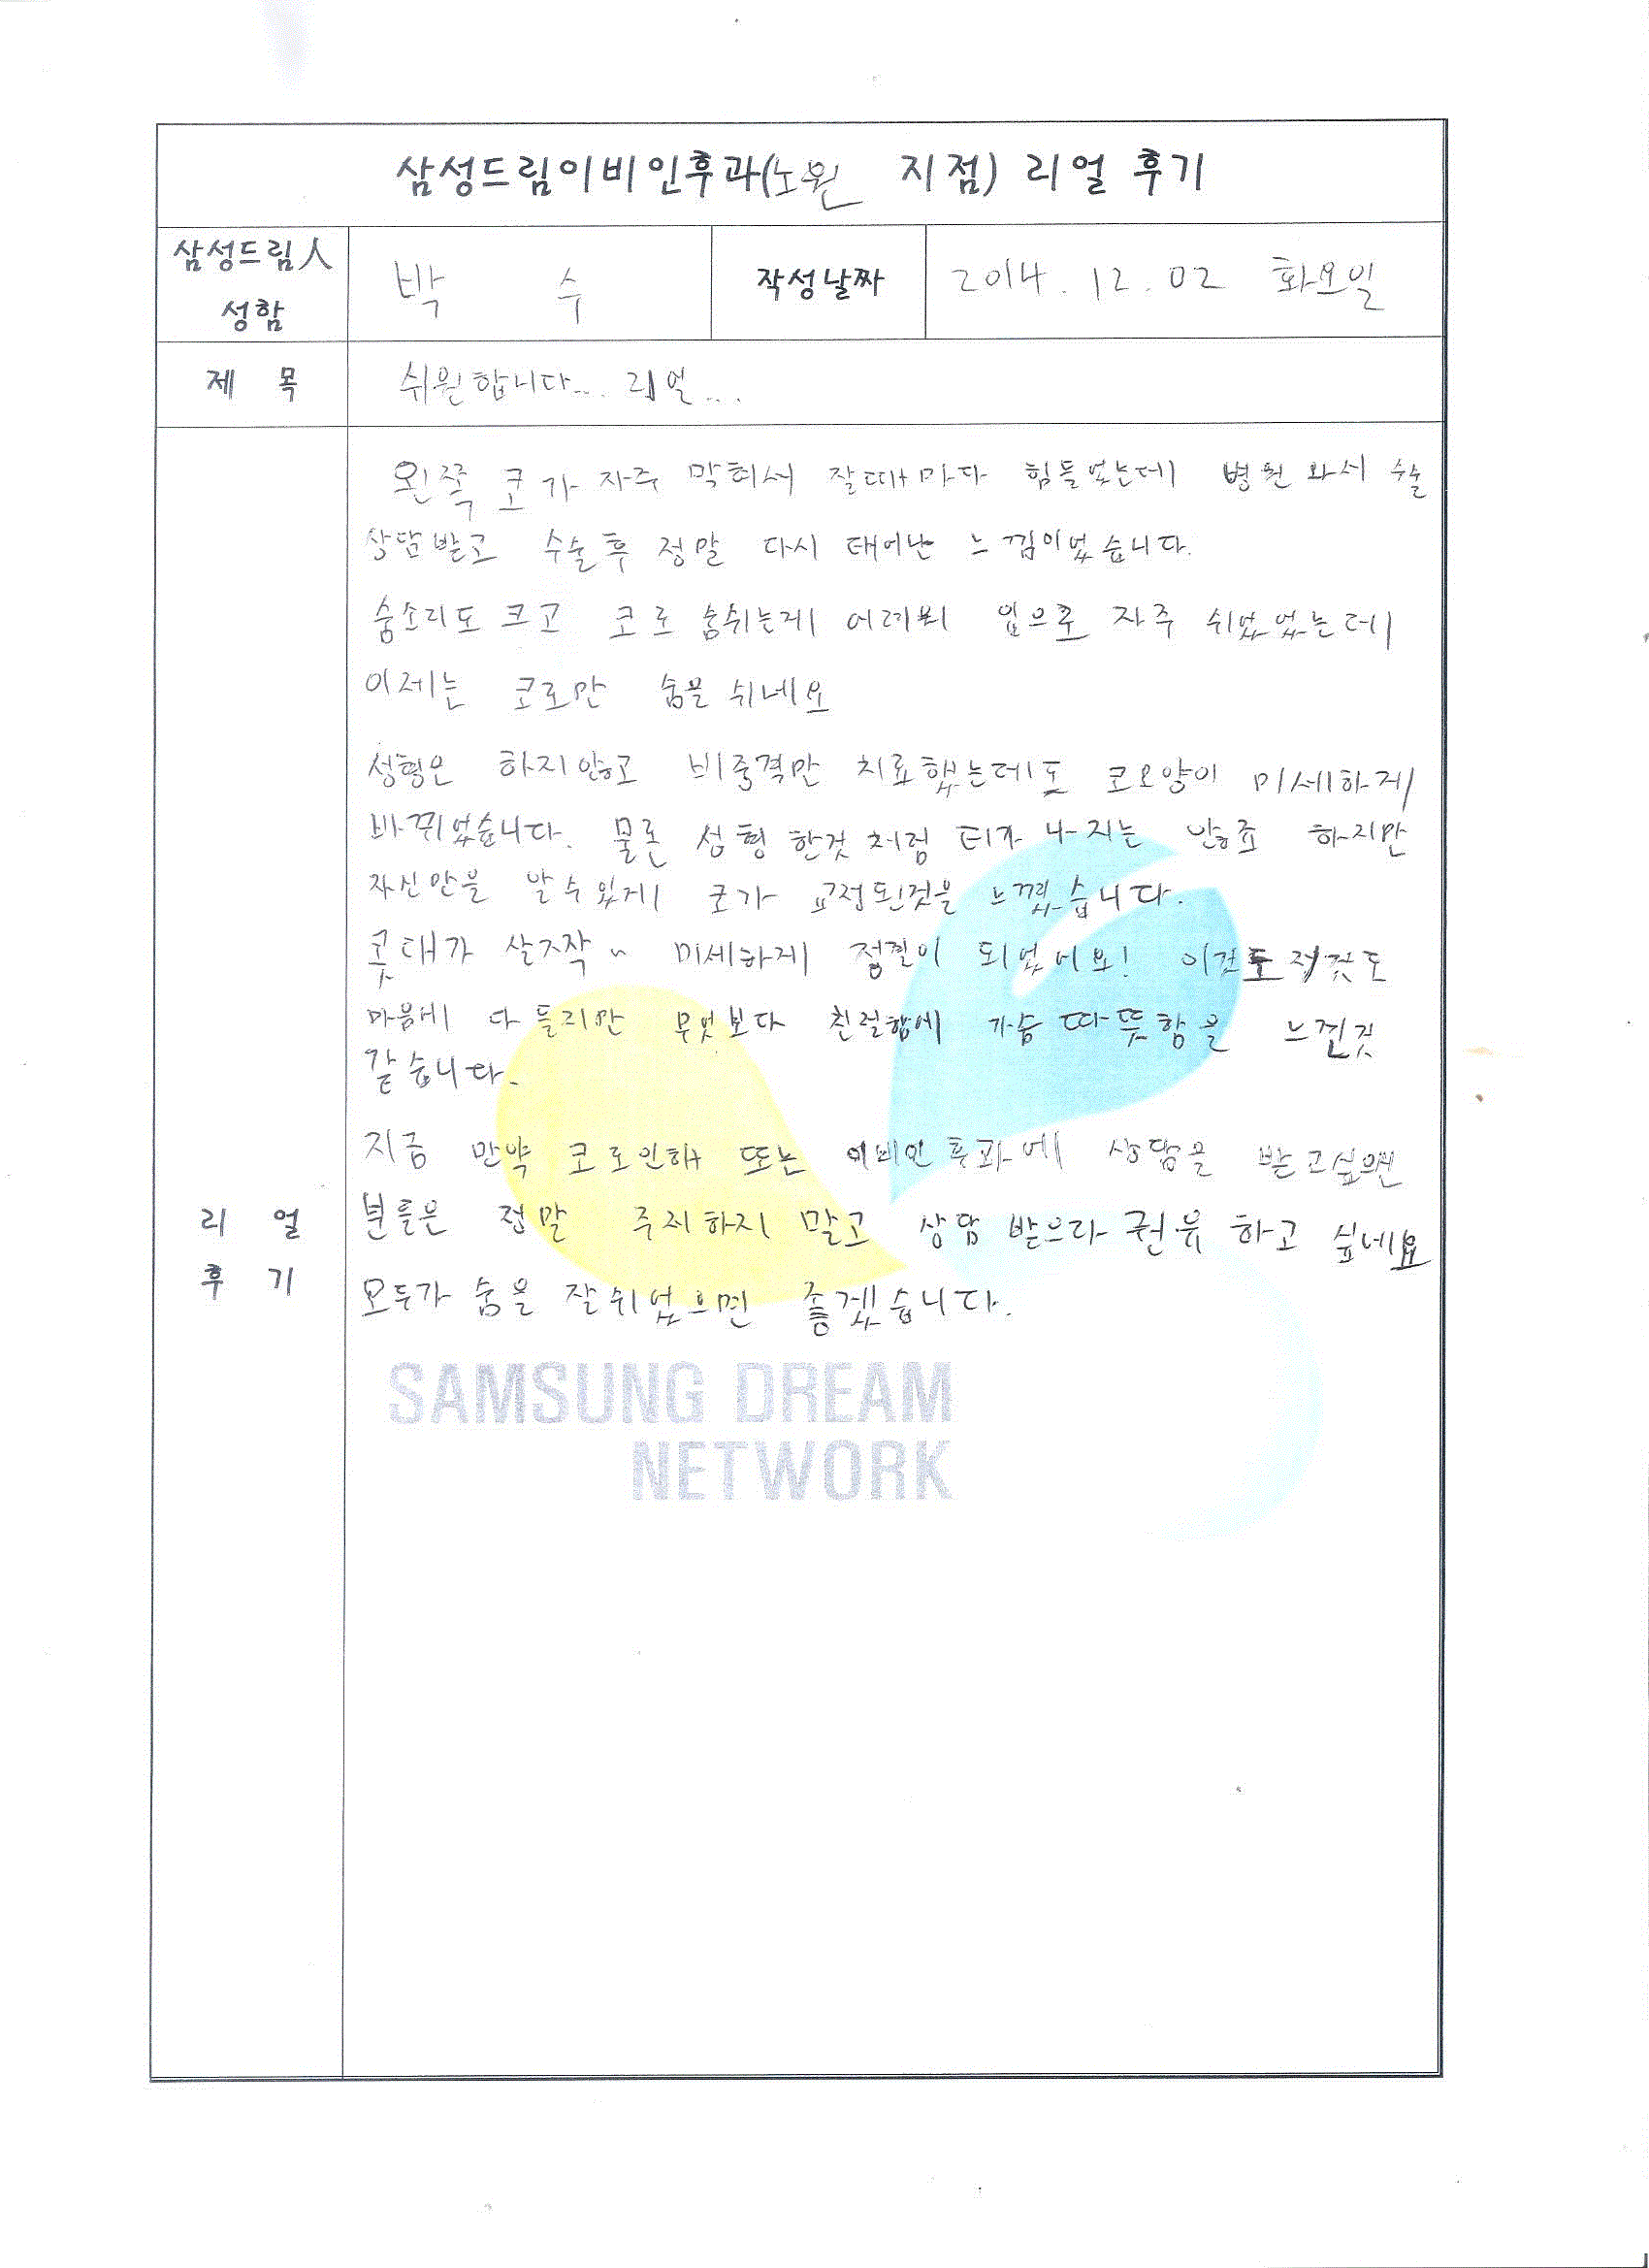 삼성드림이비인후과(노원 지점) 리얼 후기
삼성드림人 성함
박 수
작성날짜
2014. 12. 02 화요일
제 목
쉬원합니다... 리얼...
리 얼 후 기
왼쪽 코가 자주 막혀서 잘때마다 힘들었는데 병원 와서 수술
상담받고 수술후 정말 다시 태어난 느낌이었습니다.
숨소리도 크고 코로 숨쉬는게 어려워 입으로 자주 쉬었었는데
이제는 코로만 숨을 쉬네요
성형은 하지않고 비중격만 치료했는데도 코모양이 미세하게
바뀌었습니다. 물론 성형 한것 처럼 티가 나지는 않죠 하지만
자신만을 알수있게 코가 교정된것을 느꼈습니다.
콧대가 살짝~ 미세하게 정렬이 되었어요! 이것도 저것도
마음에 다 들지만 무엇보다 친절함에 가슴 따뜻함을 느낀것
같습니다.
지금 만약 코로인해 또는 이비인후과에 상담을 받고싶으면
분들은 정말 주저하지 말고 상담 받으라 권유 하고 싶네요
모두가 숨을 잘쉬었으면 좋겠습니다.
SAMSUNG DREAM
NETWORK